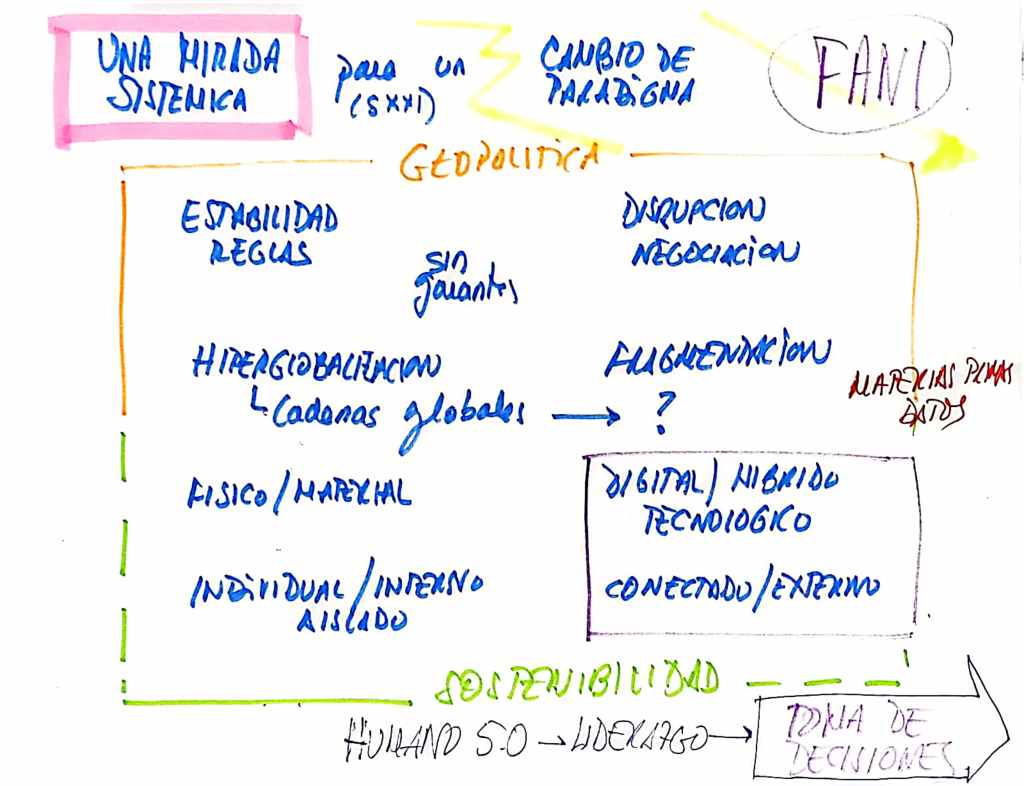 UNA MIRADA
SISTEMICA
para un
(SXXI)
CAMBIO DE
PARADIGMA
FANI
GEOPOLITICA
ESTABILIDAD
REGLAS
sin
garantes
DISRUPCION
NEGOCIACION
HIPERGLOBALIZACION
Cadenas globales → ?
FRAGMENTACION
MATERIAS PRIMAS
DATOS
FISICO/MATERIAL
DIGITAL/HIBRIDO
TECNOLOGICO
INDIVIDUAL/INTERNO
AISLADO
CONECTADO/EXTERNO
SOSTENIBILIDAD
HUMANO 5.0 → LIDERAZGO →
TOMA DE
DECISIONES